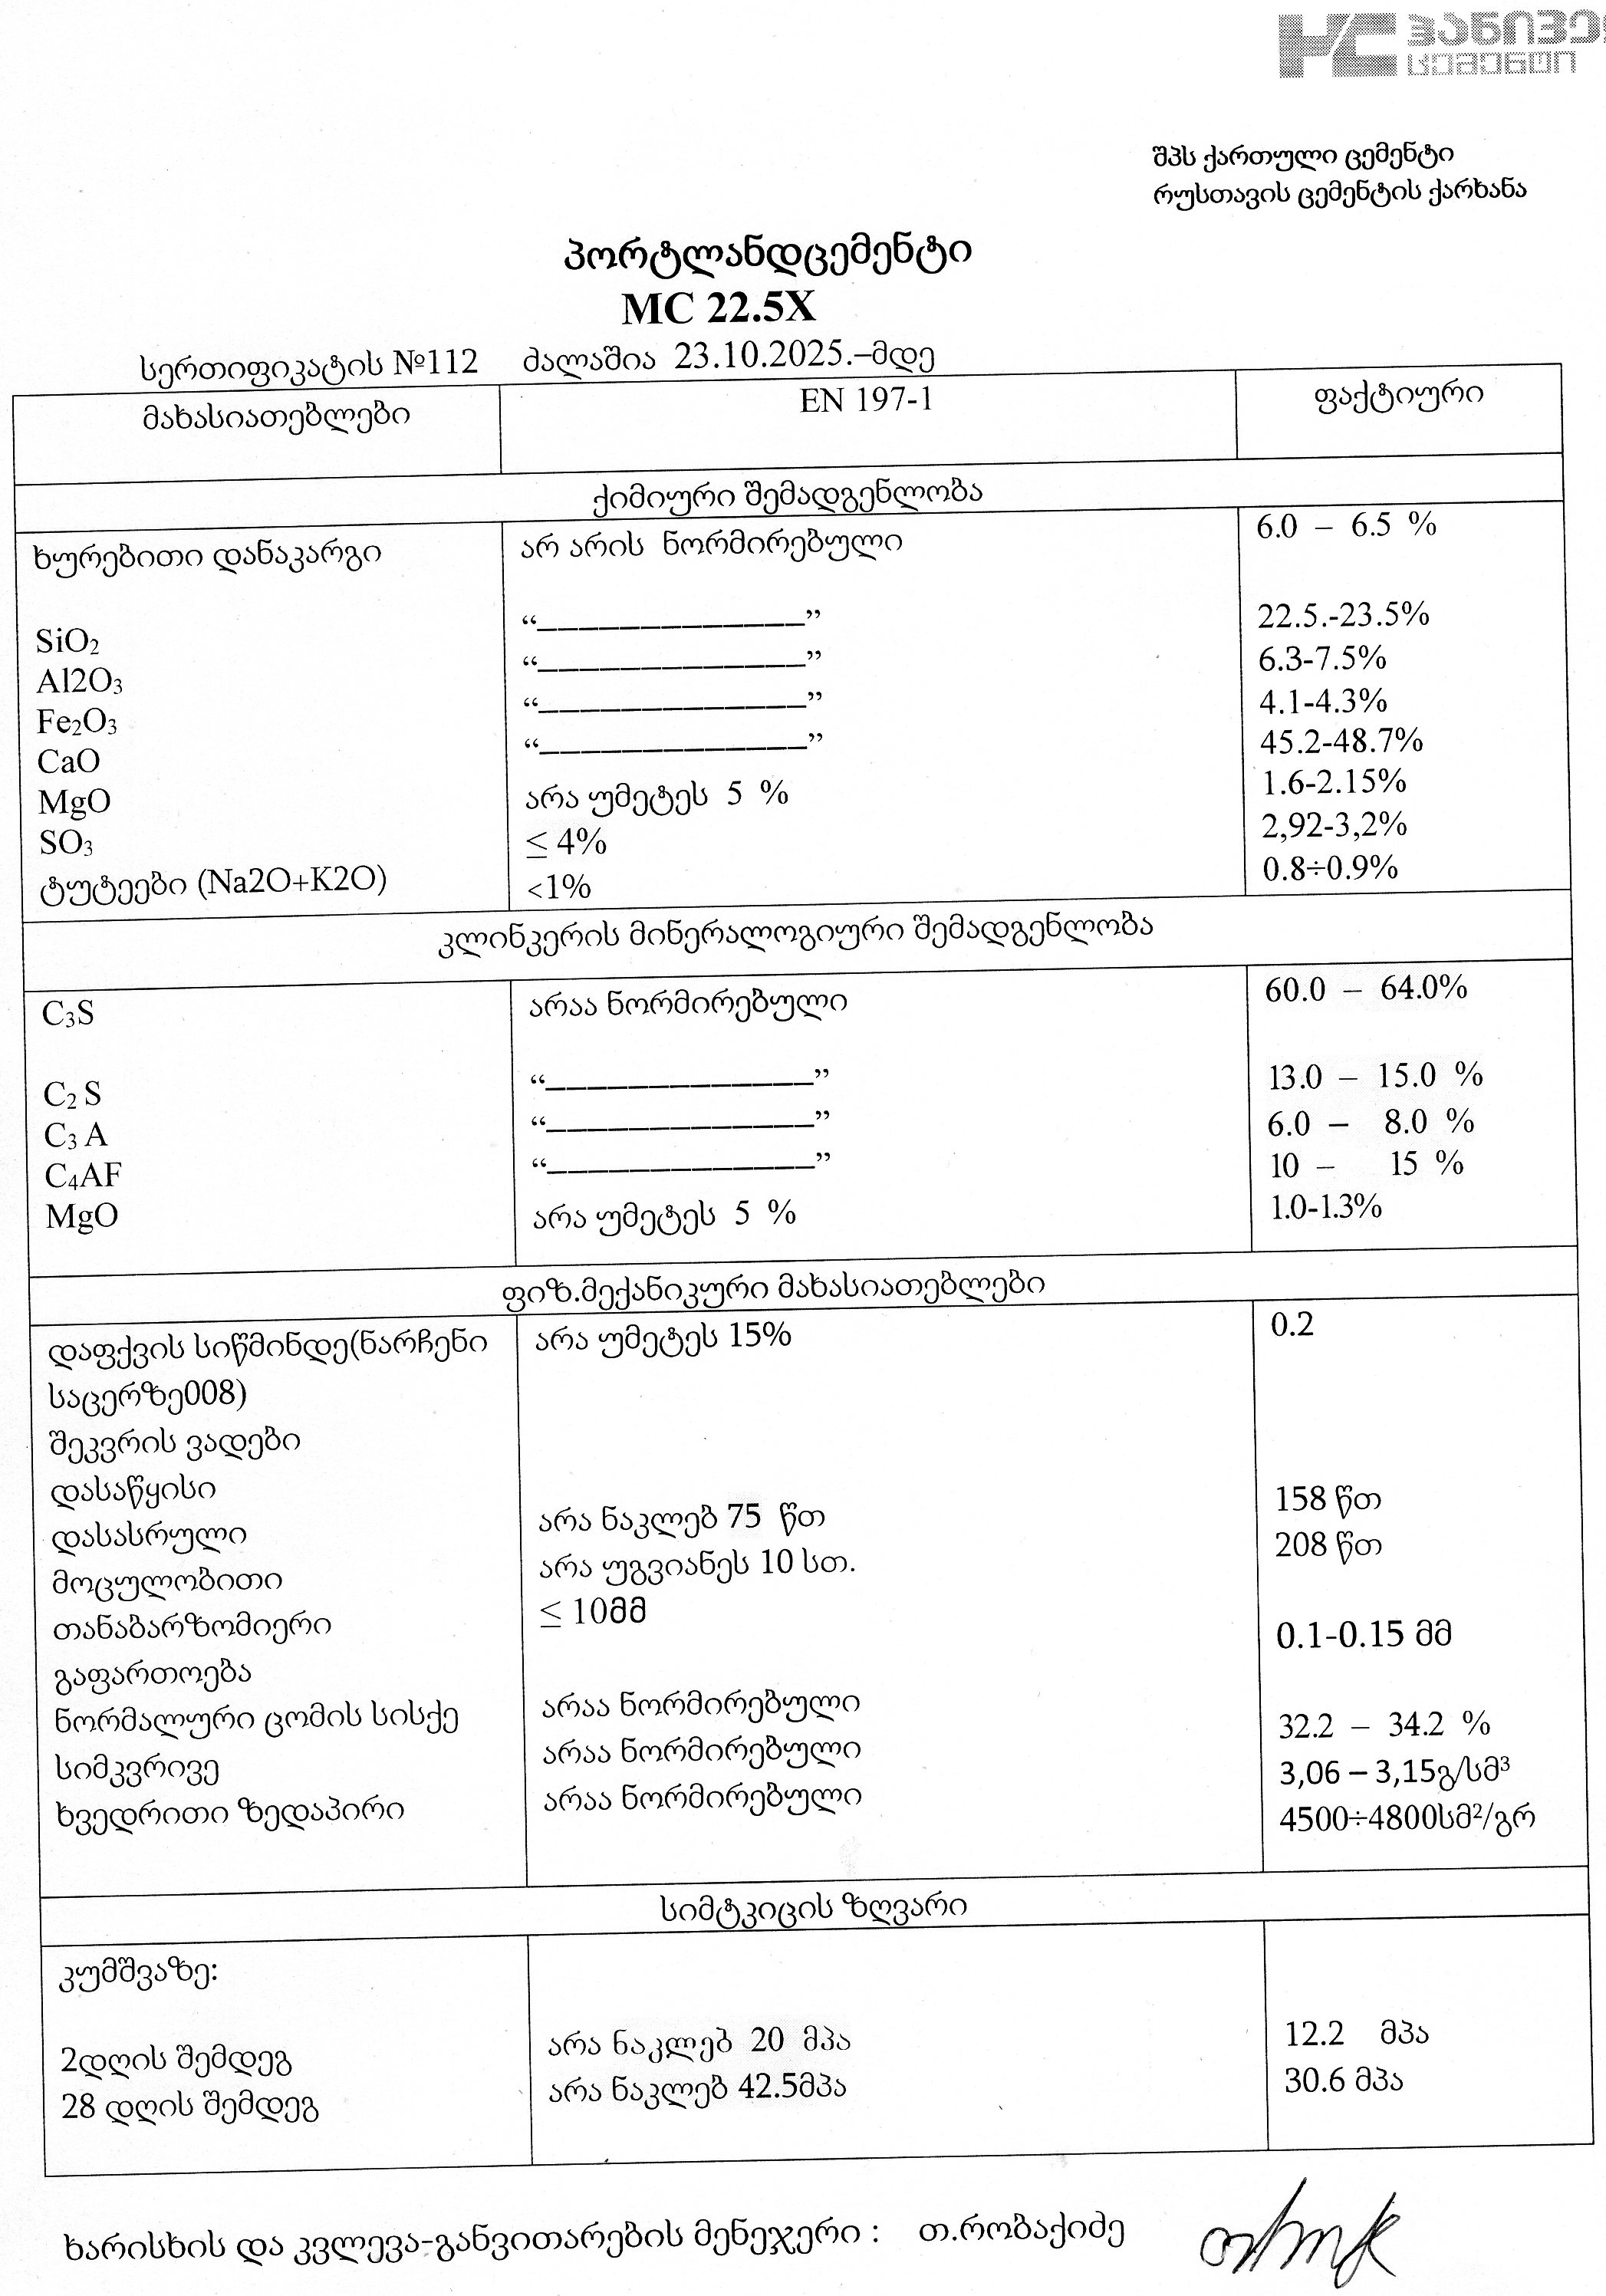 ჰაიდელბერგ
ცემენტი
შპს ქართული ცემენტი
რუსთავის ცემენტის ქარხანა
პორტლანდცემენტი
MC 22.5X
სერთიფიკატის №112 ძალაშია 23.10.2025.–მდე
მახასიათებლები EN 197-1 ფაქტიური
ქიმიური შემადგენლობა
ხურებითი დანაკარგი არ არის ნორმირებული 6.0 – 6.5 %
SiO₂ “_____________” 22.5.-23.5%
Al2O₃ “_____________” 6.3-7.5%
Fe₂O₃ “_____________” 4.1-4.3%
CaO “_____________” 45.2-48.7%
MgO არა უმეტეს 5 % 1.6-2.15%
SO₃ ≤ 4% 2,92-3,2%
ტუტეები (Na2O+K2O) <1% 0.8÷0.9%
კლინკერის მინერალოგიური შემადგენლობა
C₃S არაა ნორმირებული 60.0 – 64.0%
C₂ S “_____________” 13.0 – 15.0 %
C₃ A “_____________” 6.0 – 8.0 %
C₄AF “_____________” 10 – 15 %
MgO არა უმეტეს 5 % 1.0-1.3%
ფიზ.მექანიკური მახასიათებლები
დაფქვის სიწმინდე(ნარჩენი არა უმეტეს 15% 0.2
საცერზე008)
შეკვრის ვადები
დასაწყისი არა ნაკლებ 75 წთ 158 წთ
დასასრული არა უგვიანეს 10 სთ. 208 წთ
მოცულობითი ≤ 10მმ
თანაბარზომიერი 0.1-0.15 მმ
გაფართოება
ნორმალური ცომის სისქე არაა ნორმირებული 32.2 – 34.2 %
სიმკვრივე არაა ნორმირებული 3,06 – 3,15გ/სმ³
ხვედრითი ზედაპირი არაა ნორმირებული 4500÷4800სმ²/გრ
სიმტკიცის ზღვარი
კუმშვაზე:
2დღის შემდეგ არა ნაკლებ 20 მპა 12.2 მპა
28 დღის შემდეგ არა ნაკლებ 42.5მპა 30.6 მპა
ხარისხის და კვლევა-განვითარების მენეჯერი : თ.რობაქიძე